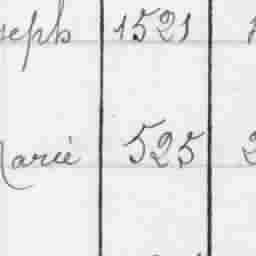 seph 1521
Marie 525 2